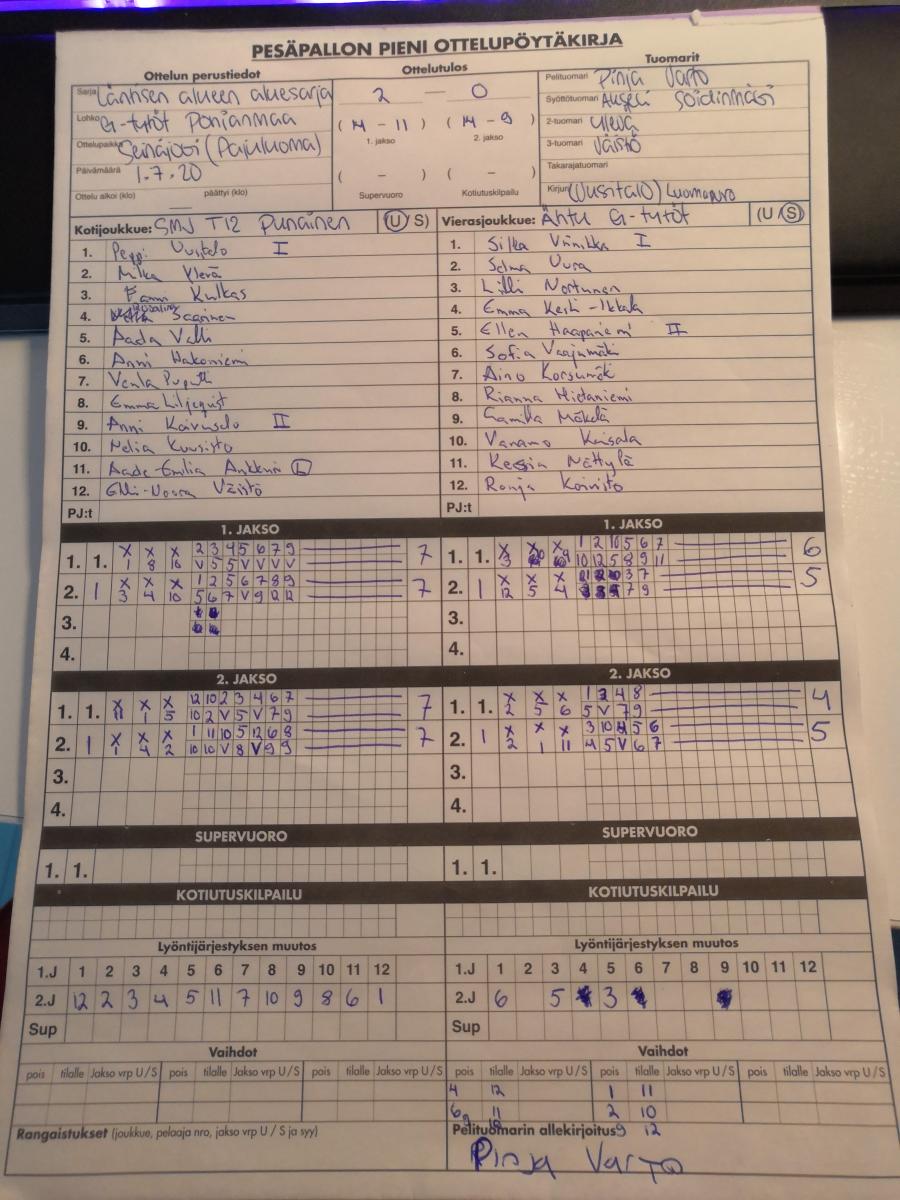 PESÄPALLON PIENI OTTELUPÖYTÄKIRJA
Ottelun perustiedot
Ottelutulos
Tuomarit
Sarja Läntisen alueen aluesarja
Lohko G-tytöt Pohjanmaa
Ottelupaikka Seinäjoki (Pajuluoma)
Päivämäärä 1.7.20
Ottelu alkoi (klo) päättyi (klo)
2 — 0
(14 - 11) (14 - 9)
1. jakso 2. jakso
( - ) ( - )
Supervuoro Kotiutuskilpailu
Pelituomari Pinja Varto
Syöttötuomari Soidinmäki
2-tuomari Ylevä
3-tuomari Väistö
Takarajatuomari
Kirjuri (Uusitalo) Luomanro
Kotijoukkue: SMJ T12 Punainen (U/S)
1. Peppi Uusitalo I
2. Milka Ylevä
3. Fanni Kulkas
4. Saarinen
5. Aada Valli
6. Anni Hakoniemi
7. Venla Puputti
8. Emma Liljeqvist
9. Anni Koivusalo II
10. Nelia Kuusisto
11. Aada-Emilia Ankkuri L
12. Elli-Noora Väistö
PJ:t
Vierasjoukkue: Ähtu G-tytöt (U/S)
1. Silka Viinikka I
2. Selma Uura
3. Lilli Nortunen
4. Emma Keski-Ikkala
5. Ellen Haapaniemi II
6. Sofia Vaajumäki
7. Aino Korsumäki
8. Rianna Hietaniemi
9. Camilla Mäkelä
10. Vanamo Keisala
11. Kessia Nättylä
12. Ronja Koivisto
PJ:t
1. JAKSO
1. 1. X X X 2 3 4 5 6 7 9 7
1 8 10 V 5 5 V V V V
2. 1 X X X 1 2 5 6 7 8 9 7
3 4 10 5 6 7 V 9 12 12
3.
4.
1. JAKSO
1. 1. X X X 1 2 10 5 6 7 6
3 10 12 5 8 9 11
2. 1 X X X 3 7 5
12 5 4 7 9
3.
4.
2. JAKSO
1. 1. X X X 12 10 2 3 4 6 7 7
11 1 5 10 2 V 5 V 7 9
2. 1 X X X 1 11 10 5 12 6 8 7
1 4 2 10 10 V 8 V 9 9
3.
4.
2. JAKSO
1. 1. X X X 1 3 4 8 4
2 5 6 5 V 7 9
2. 1 X X X 3 10 4 5 6 5
2 1 11 4 5 V 6 7
3.
4.
SUPERVUORO
1. 1.
SUPERVUORO
1. 1.
KOTIUTUSKILPAILU
KOTIUTUSKILPAILU
Lyöntijärjestyksen muutos
1.J 1 2 3 4 5 6 7 8 9 10 11 12
2.J 12 2 3 4 5 11 7 10 9 8 6 1
Sup
Lyöntijärjestyksen muutos
1.J 1 2 3 4 5 6 7 8 9 10 11 12
2.J 6 5 3
Sup
Vaihdot
pois tilalle Jakso vrp U/S pois tilalle Jakso vrp U/S pois tilalle Jakso vrp U/S
Rangaistukset (joukkue, pelaaja nro, jakso vrp U / S ja syy)
Vaihdot
pois tilalle Jakso vrp U/S pois tilalle Jakso vrp U/S pois tilalle Jakso vrp U/S
4 12 1 11
6 11 2 10
9 10 9 12
Pelituomarin allekirjoitus
Pinja Varto